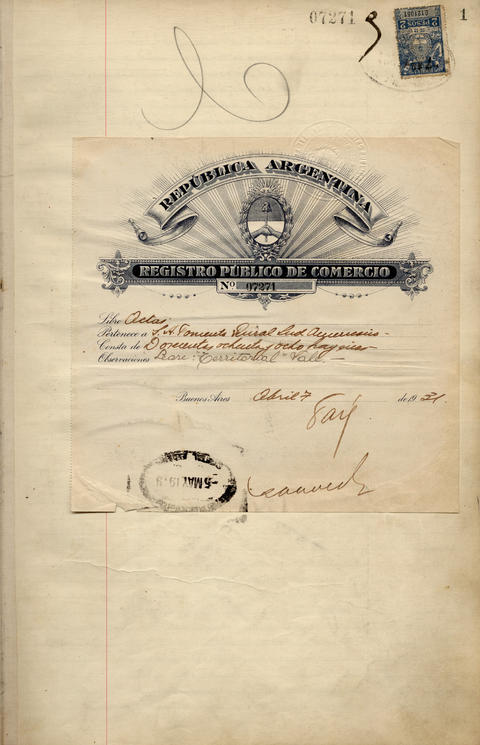 07271
1
2 PESOS 2
REPÚBLICA ARGENTINA
REGISTRO PÚBLICO DE COMERCIO
Nº 07271
Libro Actas
Pertenece a S.A. Fomento Rural Sud Americano
Consta de Doscientas ochenta y ocho páginas
Observaciones "Territorial" Vale
Buenos Aires Abril 7 de 19
5 MAY 19